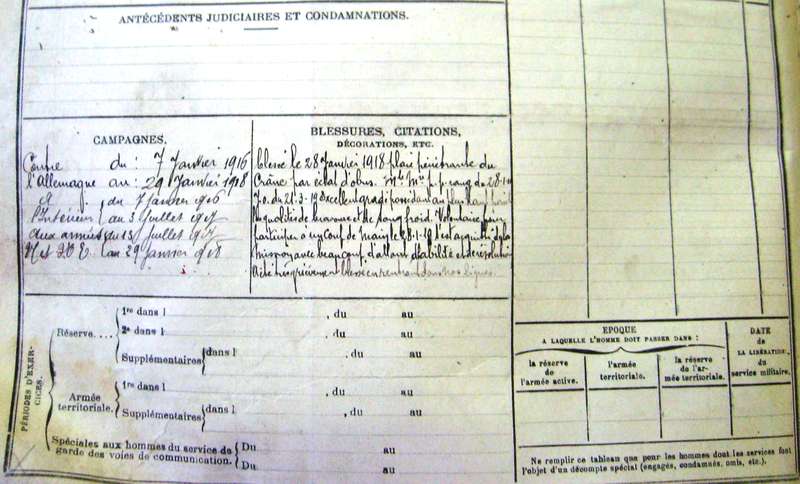 ANTÉCÉDENTS JUDICIAIRES ET CONDAMNATIONS.
CAMPAGNES.
Contre du : 7 Janvier 1916
l'Allemagne au : 29 Janvier 1918
du 7 Janvier 1916
l'Intérieur au 3 Juillet 1917
aux armées du 13 Juillet 1917
au 29 Janvier 1918
BLESSURES, CITATIONS,
DÉCORATIONS, ETC.
blessé le 28 Janvier 1918 plaie pénétrante du
Crâne par éclat d'obus. Mle Mre p. p. rang du 28-1-
J.O. du 21-3-19 Excellent gradé possédant au plus haut
qualités de bravoure et de sang froid. Volontaire pour
participer à un coup de main le 28-1-18 s'est acquitté de sa
mission avec beaucoup d'allant d'habileté et de résolution
A été très grièvement blessé en rentrant dans nos lignes.
PÉRIODES D'EXERCICES.
Réserve....
1re dans l , du au
2e dans l , du au
Supplémentaires dans l , du au
Armée territoriale.
1re dans l , du au
Supplémentaires dans l , du au
Spéciales aux hommes du service de garde des voies de communication. Du au
Du au
EPOQUE
A LAQUELLE L'HOMME DOIT PASSER DANS :
la réserve de l'armée active.
l'armée territoriale.
la réserve de l'armée territoriale.
DATE
de
LA LIBÉRATION
du
service militaire.
Ne remplir ce tableau que pour les hommes dont les services font
l'objet d'un décompte spécial (engagés, condamnés, omis, etc.).